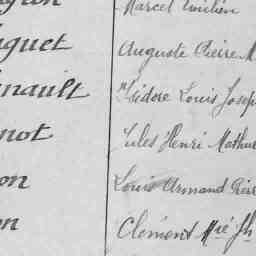 Marcel Emilien
guet Auguste Pierre M
nault Isidore Louis Josep
not Jules Henri Mathur
on Louis Armand Pier
on Clément Mie Jh